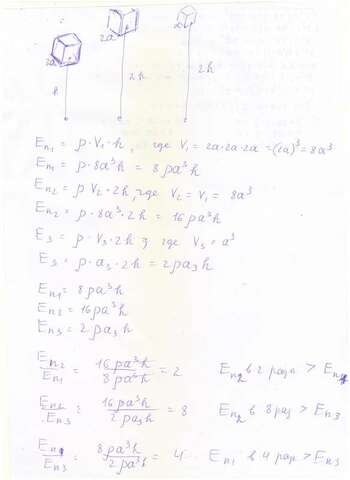 2a
2a
a
h
2h
2h
Eп₁ = p·V₁·h, где V₁ = 2a·2a·2a = (2a)³ = 8a³
Eп₁ = p·8a³h = 8pa³h
Eп₂ = p V₂·2h, где V₂ = V₁ = 8a³
Eп₂ = p·8a³·2h = 16pa³h
E₃ = p·V₃·2h, где V₃ = a³
E₃ = p·a₃·2h = 2pa₃h
Eп₁ = 8pa³h
Eп₂ = 16pa³h
Eп₃ = 2pa₃h
Eп₂/Eп₁ = 16pa³h/8pa³h = 2 Eп₂ в 2 раза > Eп₁
Eп₂/Eп₃ = 16pa³h/2pa₃h = 8 Eп₂ в 8 раз > Eп₃
Eп₁/Eп₃ = 8pa³h/2pa³h = 4 Eп₁ в 4 раз > Eп₃